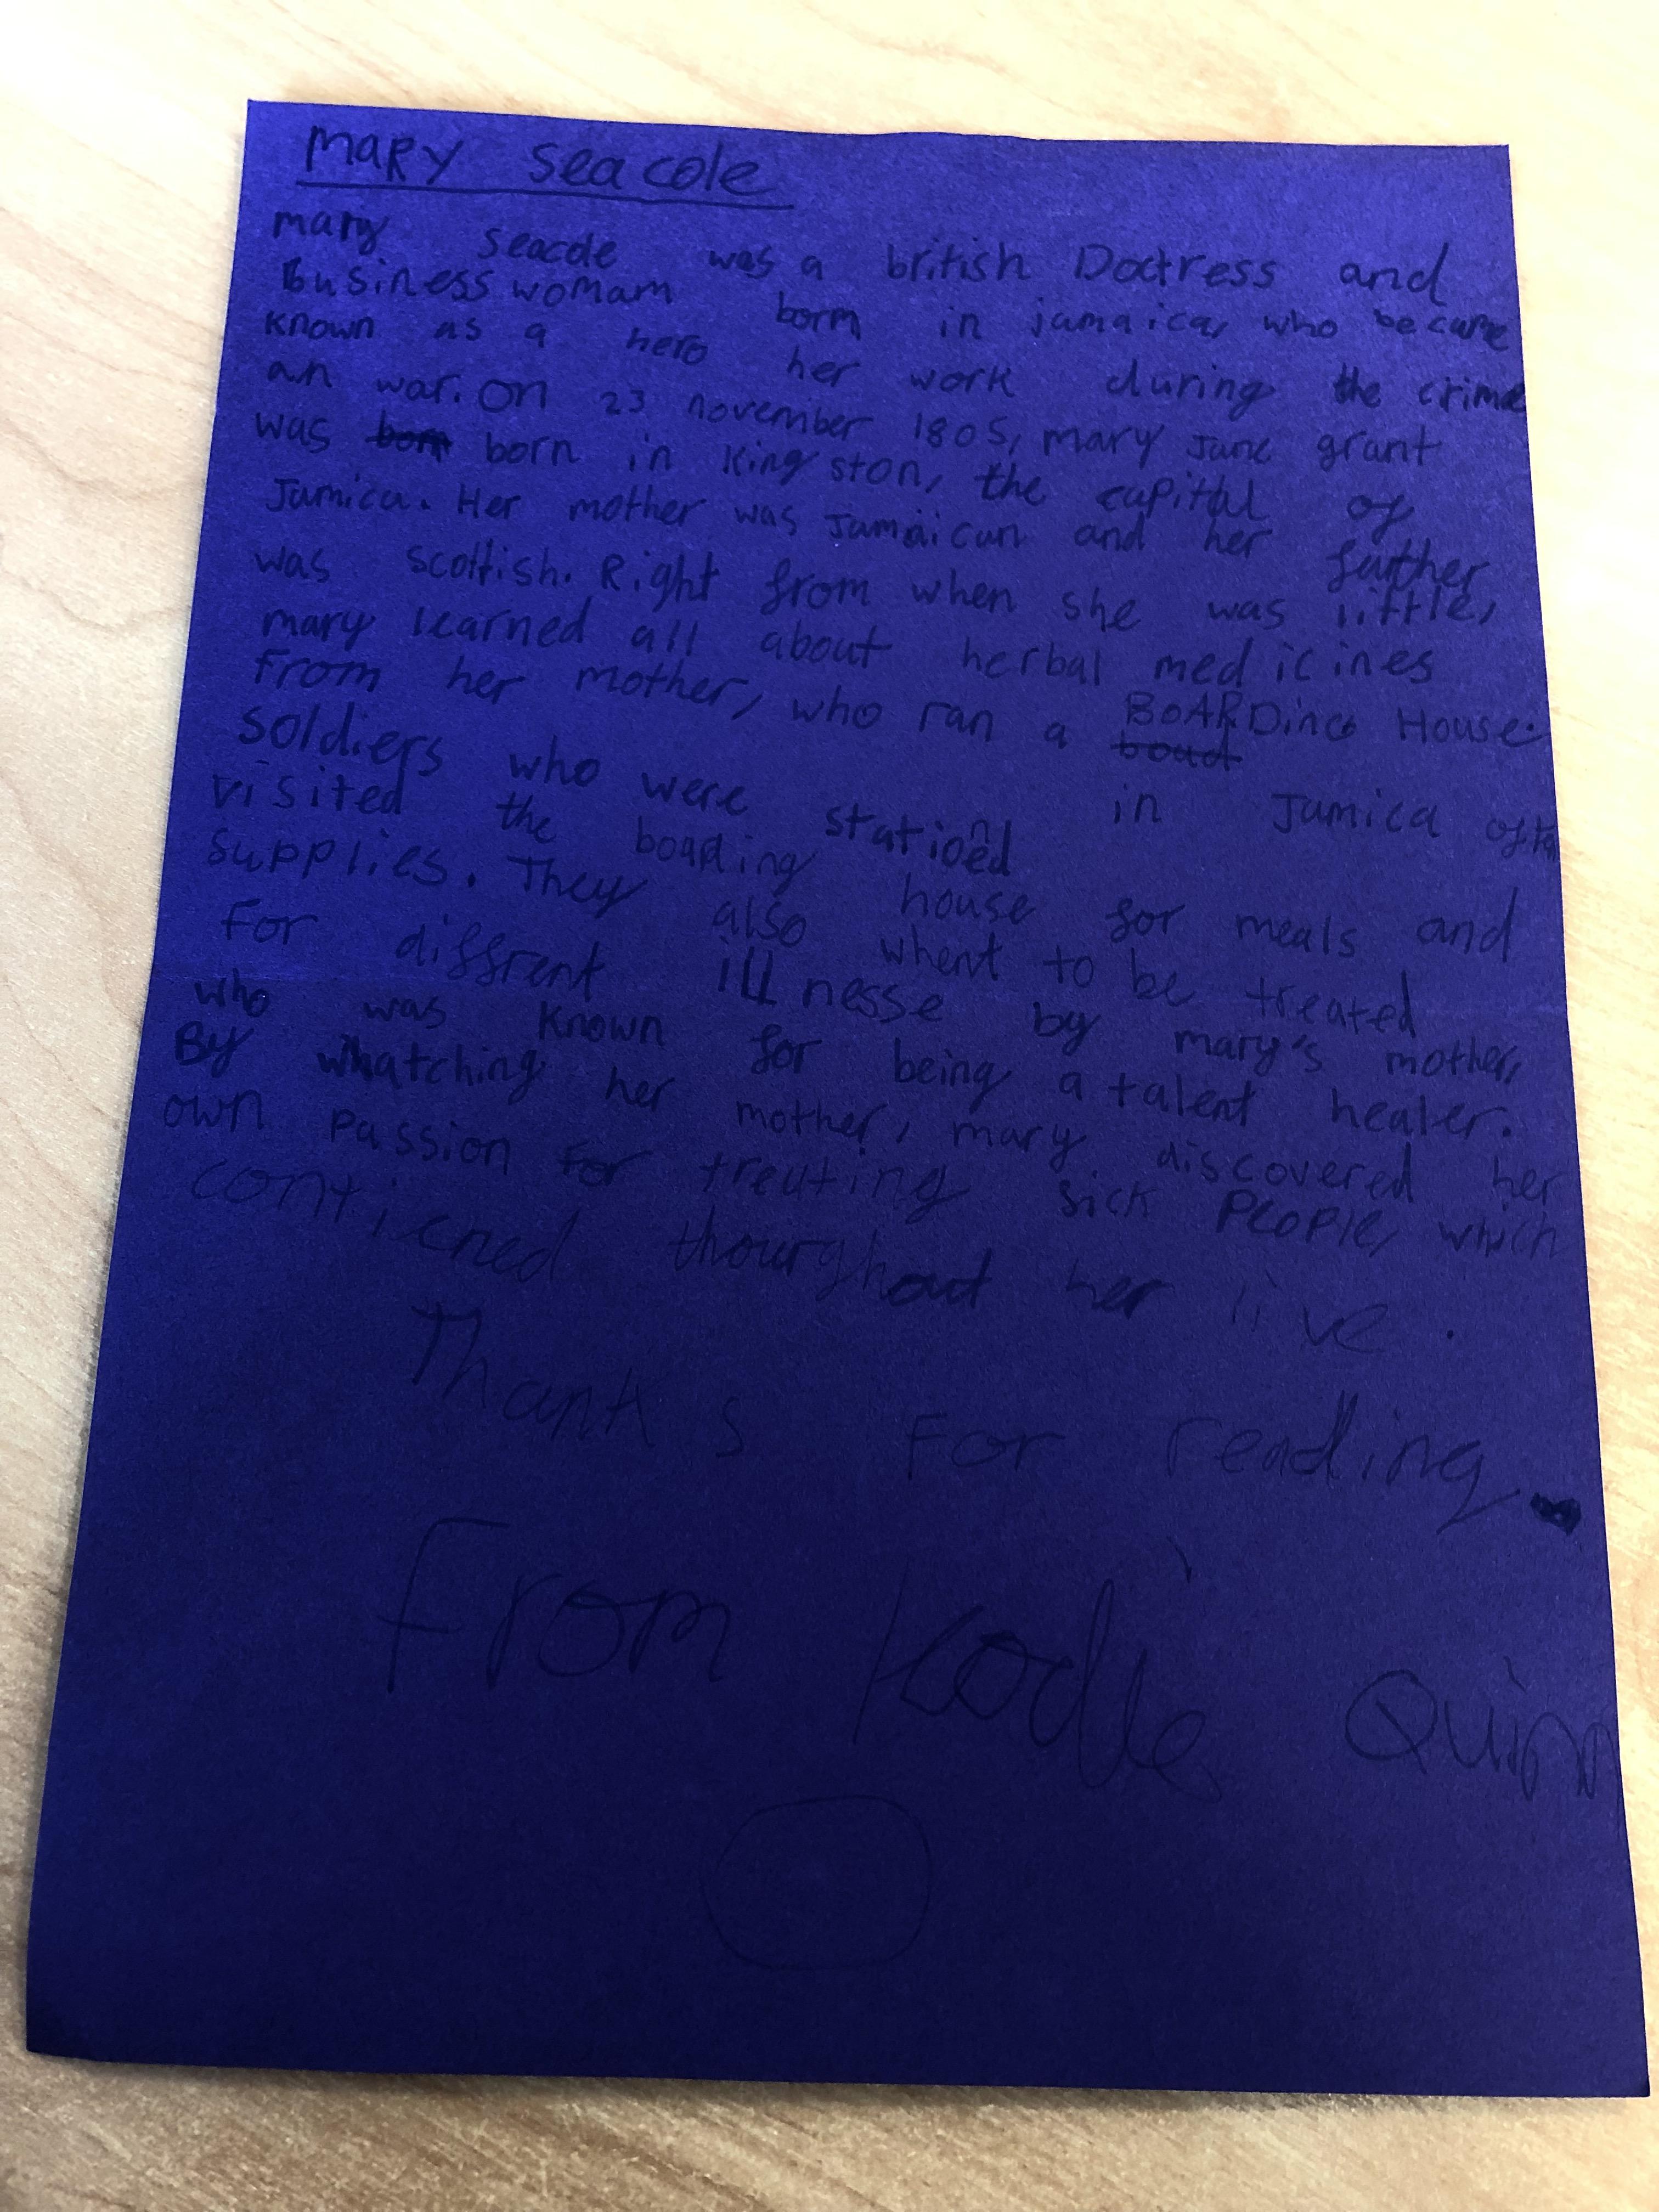 MARY seacole
mary seacole was a british Doctress and
Business womam born in jamaica, who became
known as a hero her work during the crime
an war. on 23 november 1805, mary Jane grant
was born born in King ston, the capital of
Jamica. Her mother was Jamaican and her farther
was scottish. Right from when she was little,
mary learned all about herbal medicines
From her mother, who ran a boad BOARDing House.
soldiers who were stationed in Jamica often
visited the boarding house for meals and
supplies. They also whent to be treated
For diffrent illnesse by mary's mother,
who was known for being a talent healer.
By whatching her mother, mary discovered her
own passion for treating sick People, which
contiened thourghout her live.
Thanks For reading.
From Kodie Quinn